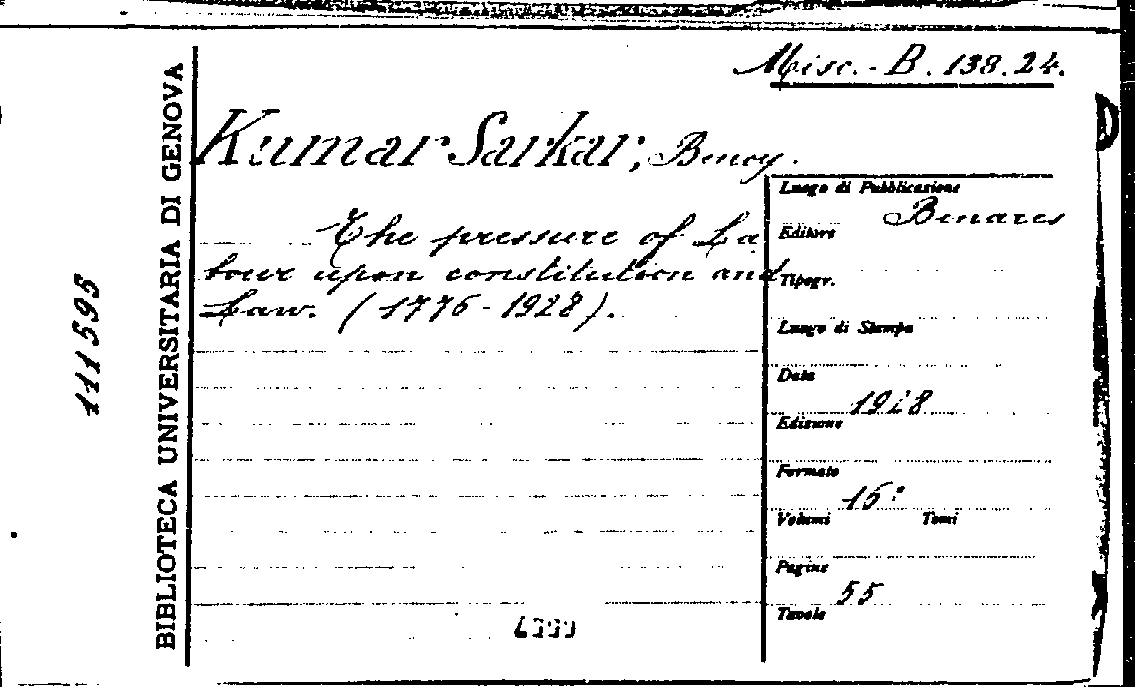 Misc. - B. 138. 24.
Kumar Sarkar, Benoy.
The pressure of La
bour upon constitution and
Law. (1776 - 1928).
Luogo di Pubblicazione
Benares
Editore
Tipogr.
Luogo di Stampa
Data
1928
Edizione
Formato
Volumi Tomi
Pagine
55
Tavole
BIBLIOTECA UNIVERSITARIA DI GENOVA
111595